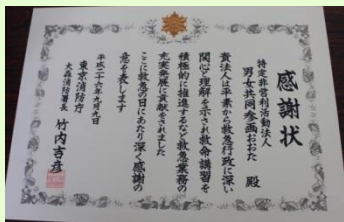 感謝状
特定非営利活動法人
男女共同参画おおた 殿
貴法人は平素から救急行政に深い
関心と理解を示され救命講習を
積極的に推進するなど救急業務の
充実発展に貢献をされました
ここに救急の日にあたり深く感謝の
意を表します
平成二十六年九月九日
東京消防庁
大森消防署長 竹内吉彦